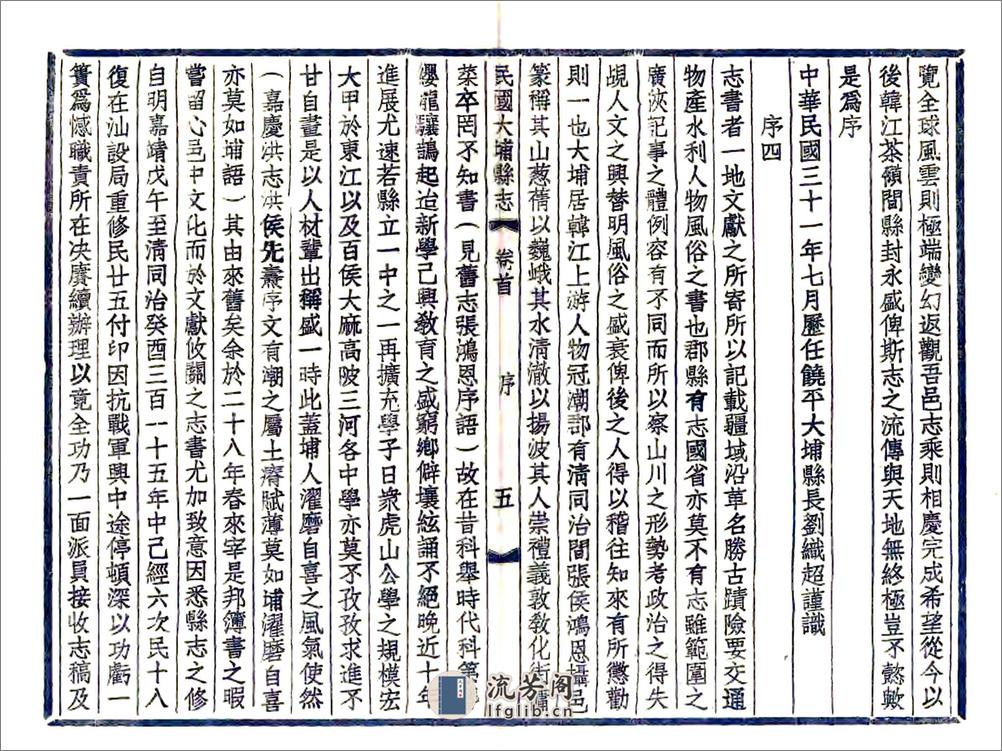 覽全球風雲則極端變幻返觀吾邑志乘則相慶完成希望從今以
後韓江茶嶺間縣封永盛俾斯志之流傳與天地無終極豈不懿歟
是爲序
中華民國三十一年七月歷任饒平大埔縣長劉織超謹識
序四
志書者一地文獻之所寄所以記載疆域沿革名勝古蹟險要交通
物產水利人物風俗之書也郡縣有志國省亦莫不有志雖範圍之
廣狹記事之體例容有不同而所以察山川之形勢考政治之得失
覘人文之興替明風俗之盛衰俾後之人得以稽往知來有所懲勸
則一也大埔居韓江上游人物冠潮郡有淸同治間張侯鴻恩攝邑
篆稱其山葱蒨以巍峨其水淸澈以揚波其人崇禮義敦敎化街傭
民國大埔縣志 卷首 序 五
菜卒罔不知書(見舊志張鴻恩序語)故在昔科舉時代科第
龍驤鵲起迨新學已興敎育之盛窮鄉僻壤絃誦不絕晚近十年
進展尤速若縣立一中之一再擴充學子日衆虎山公學之規模宏
大甲於東江以及百侯大麻高陂三河各中學亦莫不孜孜求進不
甘自畫是以人材輩出稱盛一時此蓋埔人濯磨自喜之風氣使然
(嘉慶洪志洪侯先燾序文有潮之屬土瘠賦薄莫如埔濯磨自喜
亦莫如埔語)其由來舊矣余於二十八年春來宰是邦簿書之暇
嘗留心邑中文化而於文獻攸關之志書尤加致意因悉縣志之修
自明嘉靖戊午至淸同治癸酉三百一十五年中已經六次民十八
復在汕設局重修民廿五付印因抗戰軍興中途停頓深以功虧一
簣爲憾職責所在決賡續辦理以竟全功乃一面派員接收志稿及
流芳閣
lfglib.cn